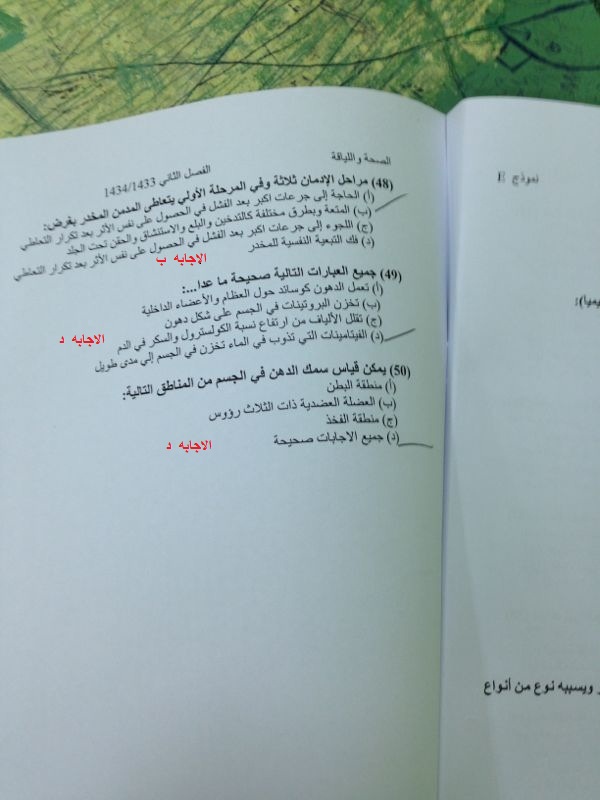 الصحة واللياقة
الفصل الثاني 1434/1433
(48) مراحل الإدمان ثلاثة وفي المرحلة الأولي يتعاطى المدمن المخدر بغرض:
(أ) الحاجة إلى جرعات اكبر بعد الفشل في الحصول على نفس الأثر بعد تكرار التعاطي
(ب) المتعة وبطرق مختلفة كالتدخين والبلع والاستنشاق والحقن تحت الجلد
(ج) اللجوء إلى جرعات اكبر بعد الفشل في الحصول على نفس الأثر بعد تكرار التعاطي
(د) فك التبعية النفسية للمخدر
الاجابه ب
(49) جميع العبارات التالية صحيحة ما عدا...:
(أ) تعمل الدهون كوسائد حول العظام والأعضاء الداخلية
(ب) تخزن البروتينات في الجسم على شكل دهون
(ج) تقلل الألياف من ارتفاع نسبة الكولسترول والسكر في الدم
(د) الفيتامينات التي تذوب في الماء تخزن في الجسم إلي مدى طويل
الاجابه د
(50) يمكن قياس سمك الدهن في الجسم من المناطق التالية:
(أ) منطقة البطن
(ب) العضلة العضدية ذات الثلاث رؤوس
(ج) منطقة الفخذ
(د) جميع الاجابات صحيحة
الاجابه د
نموذج E
يميا):
ر ويسببه نوع من أنواع